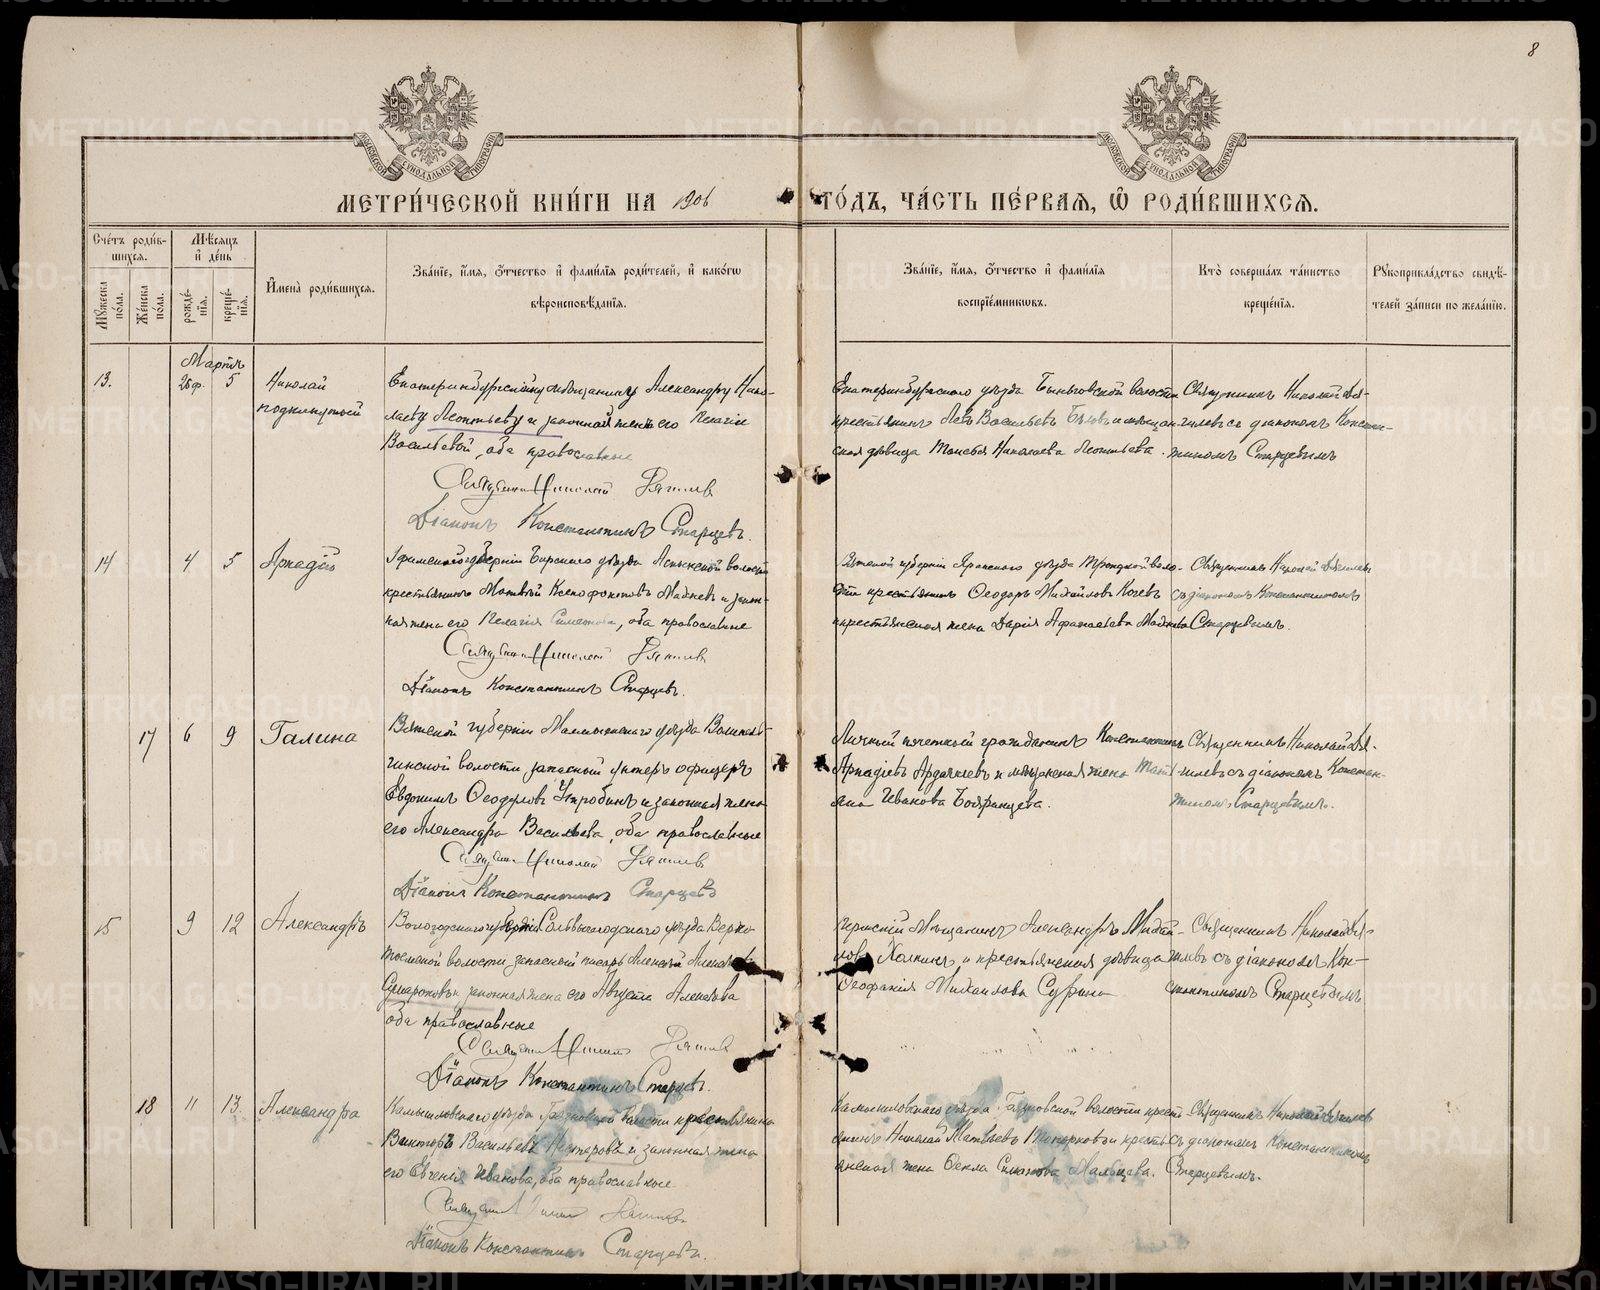 8
МЕТРИ́ЧЕСКОЙ КНИ́ГИ НА 1906 ГО́ДЪ, ЧА́СТЬ ПЕ́РВАѦ, Ѡ РОДИ́ВШИХСѦ.
Сче́тъ роди́в-
шихся.
Мѣ́сяцъ
и҆ де́нь
Мꙋ́жеска по́ла.
Же́нска по́ла.
рожде́-
нїѧ.
креще́-
нїѧ.
И҆мена̀ роди́вшихсѧ.
Зва́нїе, и҆́мѧ, ѻ҆́тчество и҆ фами́лїѧ роди́телей, и҆ како́гѡ
вѣроисповѣ́данїѧ.
Зва́нїе, и҆́мѧ, ѻ҆́тчество и҆ фами́лїѧ
воспрїе́мникѡвъ.
Кто̀ соверша́лъ та́инство
креще́нїѧ.
Рꙋкоприкла́дство свидѣ́-
телей за́писи по жела́нїю.
Мартъ
13. 26 ф. 5 Николай
подкинутый
Екатеринбургскому мѣщанину Александру Нико-
лаеву Леонтьеву и законной женѣ его Пелагіи
Васильевой, оба православные
Священникъ Николай
Діаконъ Константинъ Старцевъ.
Екатеринбургскаго уѣзда Быньговской волости
крестьянинъ Левъ Васильевъ Бѣловъ и мѣщан-
ская дѣвица Таисья Николаева Леонтьева.
Священникъ Николай
съ діакономъ Констан-
тиномъ Старцевымъ
14 4 5 Аркадій
Уфимской губерніи Бирскаго уѣзда волости
крестьянинъ Матвѣй Ксенофонтовъ и закон-
ная жена его Пелагія, оба православные
Священникъ Николай
Діаконъ Константинъ Старцевъ.
Вятской губерніи Яранскаго уѣзда Троицкой воло-
сти крестьянинъ Ѳеодоръ Михайловъ
и крестьянская жена Дарія Афанасьева
Священникъ Николай
съ діакономъ Константиномъ
Старцевымъ.
17 6 9 Галина
Вятской губерніи Малмыжскаго уѣзда
волости запасный унтеръ офицеръ
Евдокимъ Ѳеодоровъ и законная жена
его Александра Васильева, оба православные
Священникъ Николай
Діаконъ Константинъ Старцевъ
Личный почетный гражданинъ Константинъ
Аркадіевъ Ардашевъ и мѣщанская жена Тать-
яна Иванова Бояринцева.
Священникъ Николай
съ діакономъ Констан-
тиномъ Старцевымъ.
15 9 12 Александръ
Вологодской губерніи Сольвычегодскаго уѣзда Верхо-
волости запасный писарь Алексѣй
и законная жена его Августа Алексѣева
оба православные
Священникъ Николай
Діаконъ Константинъ Старцевъ.
Пермскій мѣщанинъ Александръ Михай-
ловъ и крестьянская дѣвица
Ѳеофанія Михаилова Сурина
Священникъ Николай
съ діакономъ Кон-
стантиномъ Старцевымъ
18 11 13. Александра
Камышловскаго уѣзда волости крестьянинъ
Викторъ Васильевъ Нестеровъ и законная жена
его Евгенія Иванова, оба православные
Священникъ
Діаконъ Константинъ Старцевъ.
Камышловскаго уѣзда волости кресть-
янинъ Николай Матвѣевъ и кресть-
янская жена Ѳекла Мальцева.
Священникъ Николай
съ діакономъ Константиномъ
Старцевымъ.
METRIKI.GASO-URAL.RU